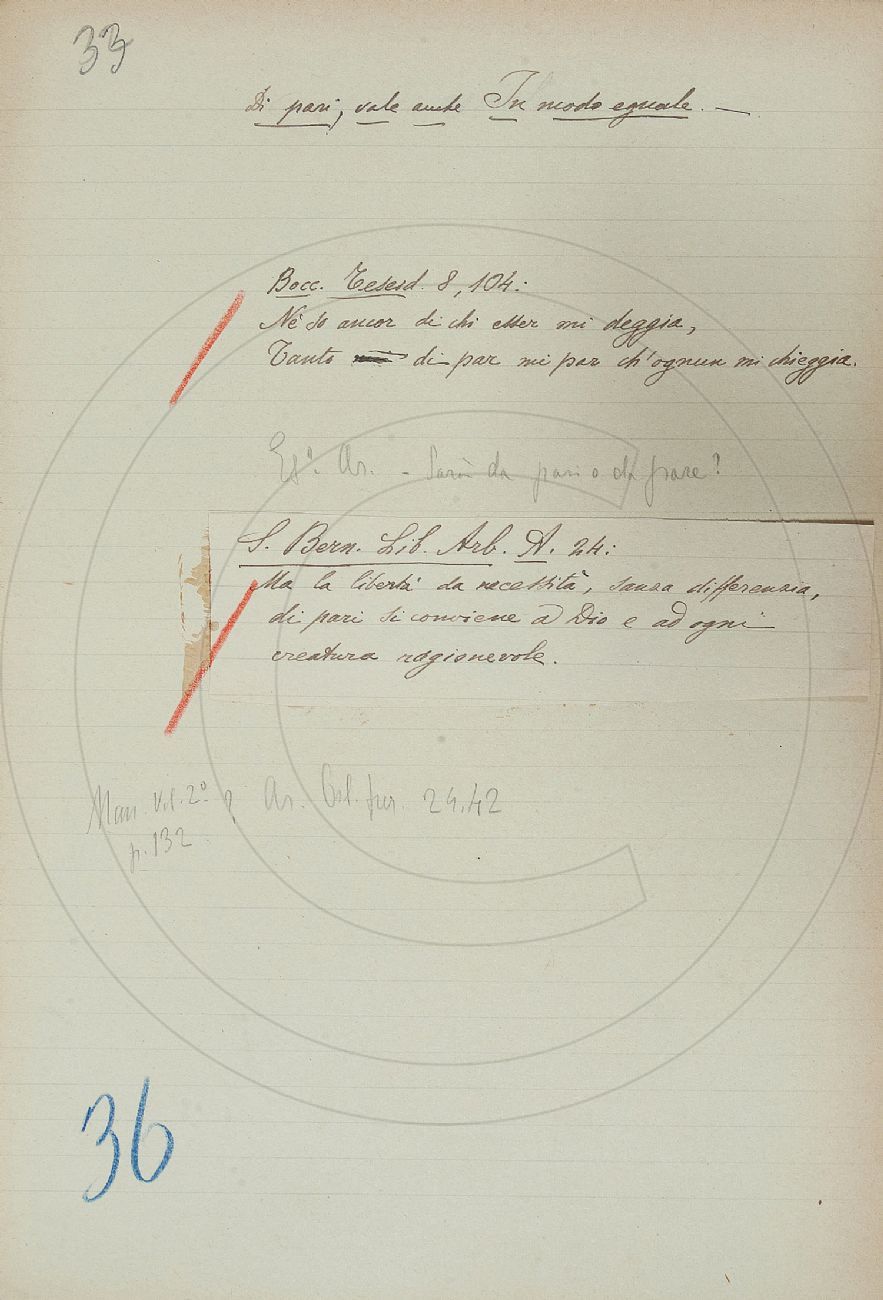 33
Di pari, vale anche In modo eguale. —
Bocc. Teseid. 8, 104:
Nè so ancor di chi esser mi deggia,
Tanto di par mi par ch'ognun mi chieggia.
Ar. - Sarà da pari o da pare?
S. Bern. Lib. Arb. A. 24:
Ma la libertà da necessità, sanza differenzia,
di pari si conviene a Dio e ad ogni
creatura ragionevole.
Man. Vol. 2º Ar. Orl. fur. 24.42
p. 132
36